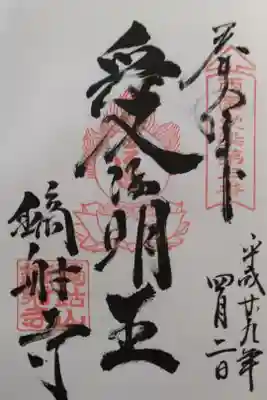 奉拝
平成廿九年
四月二日
愛染明王
鏑射寺